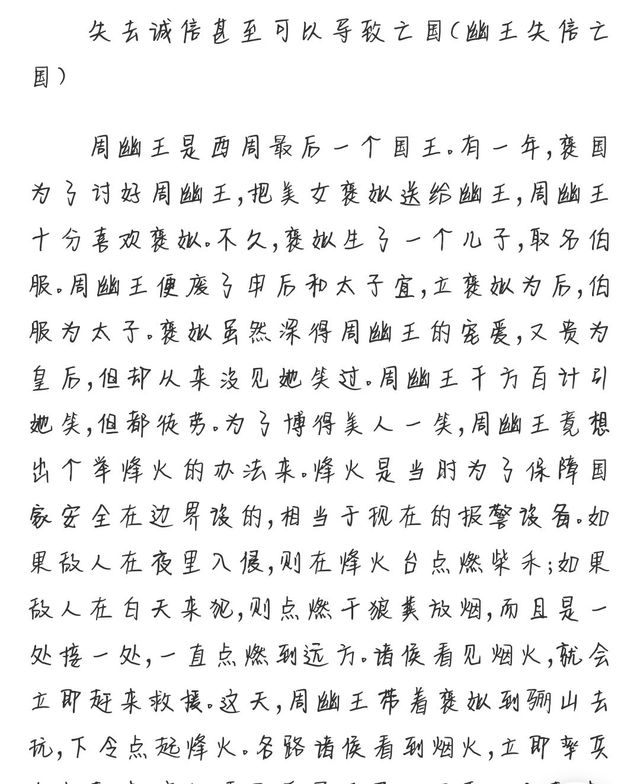 失去诚信甚至可以导致亡国(幽王失信亡
国)
周幽王是西周最后一个国王。有一年,褒国
为了讨好周幽王,把美女褒姒送给幽王,周幽王
十分喜欢褒姒。不久,褒姒生了一个儿子,取名伯
服。周幽王便废了申后和太子宜,立褒姒为后,伯
服为太子。褒姒虽然深得周幽王的宠爱,又贵为
皇后,但却从来没见她笑过。周幽王千方百计引
她笑,但都徒劳。为了博得美人一笑,周幽王竟想
出个举烽火的办法来。烽火是当时为了保障国
家安全在边界设的,相当于现在的报警设备。如
果敌人在夜里入侵,则在烽火台点燃柴禾;如果
敌人在白天来犯,则点燃干狼粪放烟,而且是一
处接一处,一直点燃到远方。诸侯看见烟火,就会
立即赶来救援。这天,周幽王带着褒姒到骊山去
玩,下令点起烽火。各路诸侯看到烟火,立即率兵